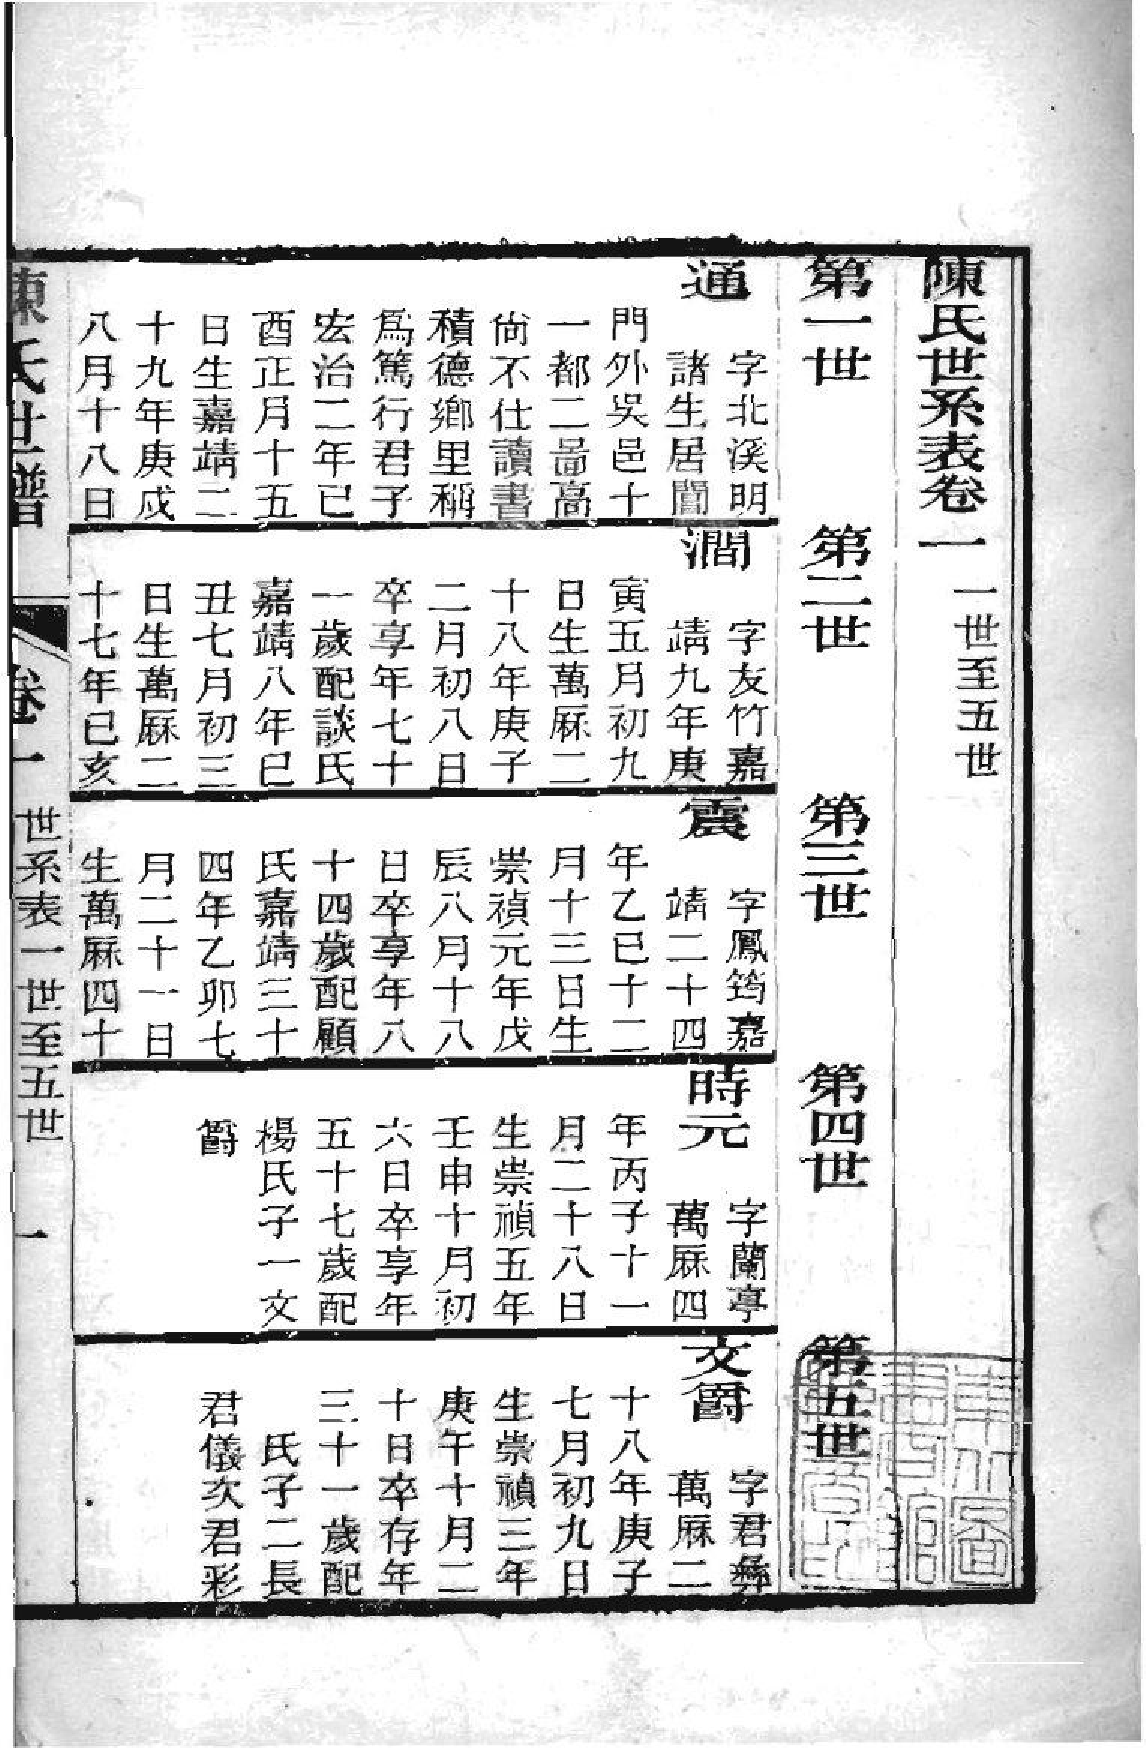 陳氏世系表卷一
一世至五世
第一世
第二世
第三世
第四世
第五世
通
字北溪明
諸生居閶
門外吳邑十
一都二啚高
尙不仕讀書
積德鄉里稱
爲篤行君子
宏治二年已
酉正月十五
日生嘉靖二
十九年庚戌
八月十八日
澗
字友竹嘉
靖九年庚
寅五月初九
日生萬厤二
十八年庚子
二月初八日
卒享年七十
一歲配談氏
嘉靖八年已
丑七月初三
日生萬厤二
十七年已亥
震
字鳳筠嘉
靖二十四
年乙巳十二
月十三日生
崇禎元年戊
辰八月十八
日卒享年八
十四歲配顧
氏嘉靖三十
四年乙卯七
月二十一日
生萬厤四十
時元
字蘭亭
萬厤四
年丙子十一
月二十八日
生崇禎五年
壬申十月初
六日卒享年
五十七歲配
楊氏子一文
爵
文爵
字君彝
萬厤二
十八年庚子
七月初九日
生崇禎三年
庚午十月二
十日卒存年
三十一歲配
氏子二長
君儀次君彩
陳氏世譜
卷一
世系表一世至五世
一